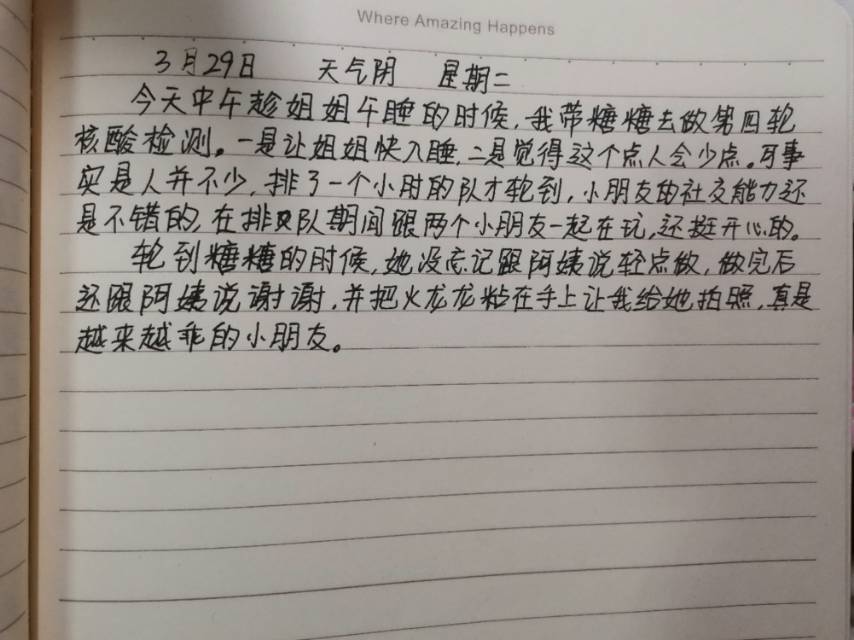 Where Amazing Happens
3月29日 天气阴 星期二
今天中午趁姐姐午睡的时候,我带糖糖去做第四轮
核酸检测。一是让姐姐快入睡,二是觉得这个点人会少点。可事
实是人并不少,排了一个小时的队才轮到,小朋友的社交能力还
是不错的,在排队期间跟两个小朋友一起在玩,还挺开心的。
轮到糖糖的时候,她没忘记跟阿姨说轻点做,做完后
还跟阿姨说谢谢,并把火龙龙粘在手上让我给她拍照,真是
越来越乖的小朋友。